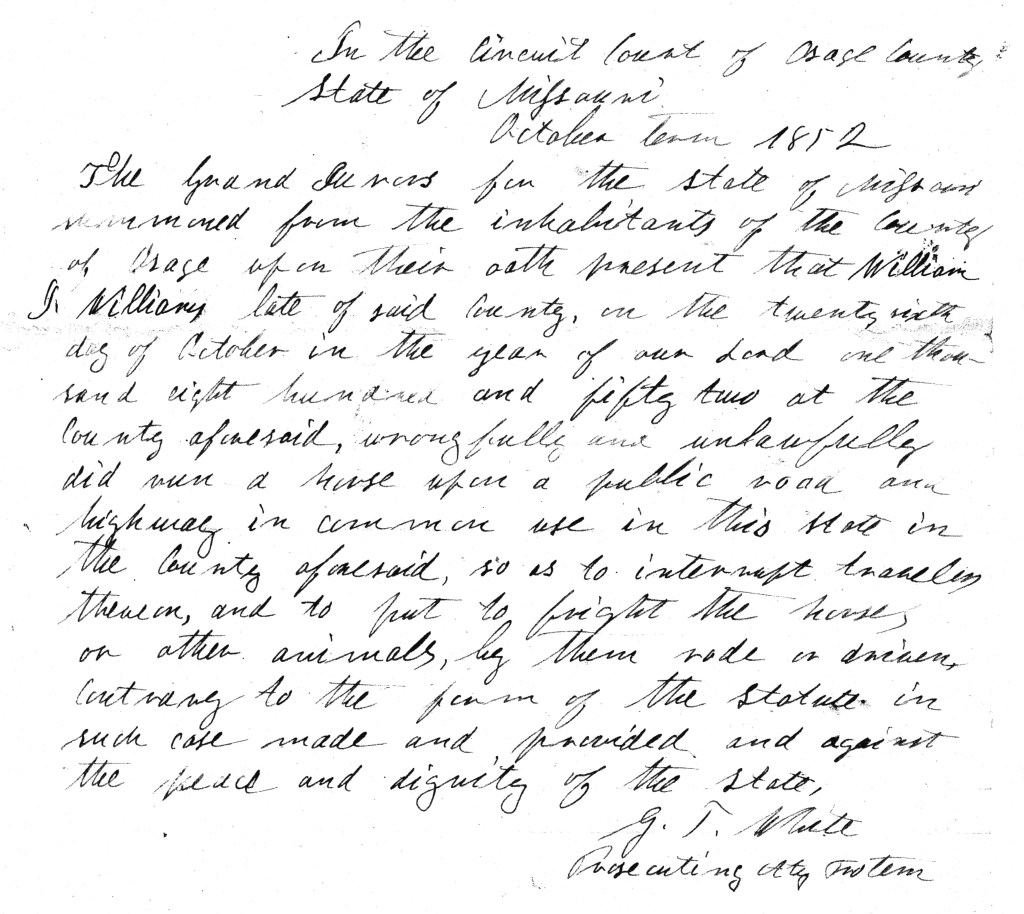 In the Circuit Court of Osage County
State of Missouri
October term 1852
The Grand Jurors for the State of Missouri
summoned from the inhabitants of the County
of Osage upon their oath present that William
J. Williams late of said County, on the twenty sixth
day of October in the year of our Lord one thou-
sand eight hundred and fifty two at the
County aforesaid, wrongfully and unlawfully
did run a horse upon a public road and
highway in common use in this State in
the County aforesaid, so as to interrupt travelers
thereon, and to put to fright the horses
or other animals, by them rode or driven,
Contrary to the form of the Statute in
such case made and provided and against
the peace and dignity of the State,
G. T. White
Prosecuting Aty Protem